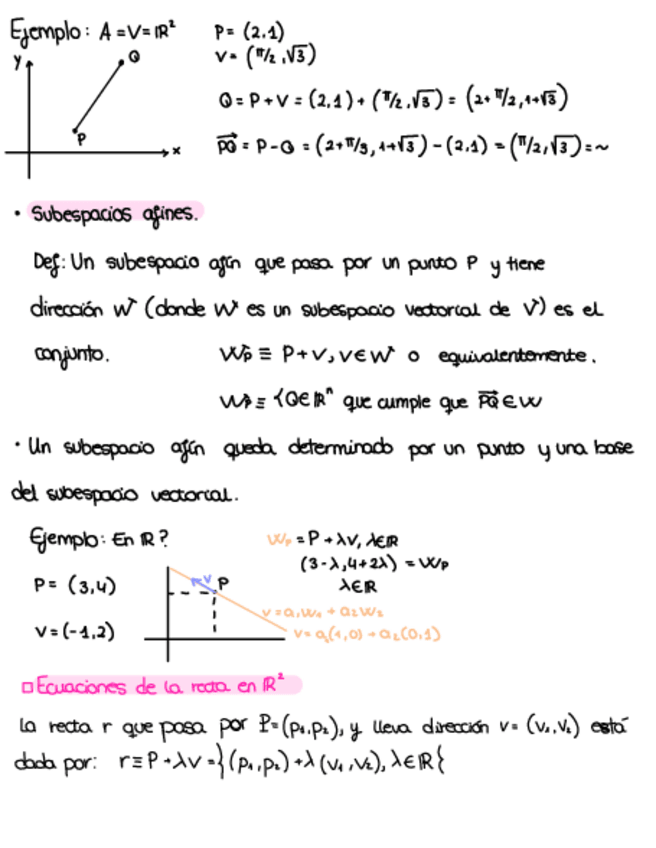 Ejemplo: A=V=ℝ² P= (2,1)
V= (π/2,√3)
y Q
Q=P+V=(2,1)+(π/2,√3)=(2+π/2,1+√3)
P
x
PQ⃗ = P-Q = (2+π/3,1+√3)-(2,1)=(π/2,√3)=~
• Subespacios afines.
Def: Un subespacio afín que pasa por un punto P y tiene
dirección W (donde W es un subespacio vectorial de V) es el
conjunto. Wp ≡ P+V,V∈W o equivalentemente.
Wp ≡ {Q∈ℝⁿ que cumple que PQ⃗ ∈W
• Un subespacio afín queda determinado por un punto y una base
del subespacio vectorial.
Ejemplo: En ℝ? Wp =P+λV,λ∈ℝ
(3-λ,4+2λ) = Wp
P= (3,4) v P λ∈ℝ
v=a₁w₁ + a₂w₂
V=(-1,2) v= a₁(1,0) + a₂(0,1)
□ Ecuaciones de la recta en ℝ²
La recta r que pasa por P=(p₁,p₂), y lleva dirección v= (v₁,v₂) está
dada por: r≡P+λV=}(p₁,p₂)+λ(v₁,v₂),λ∈ℝ{